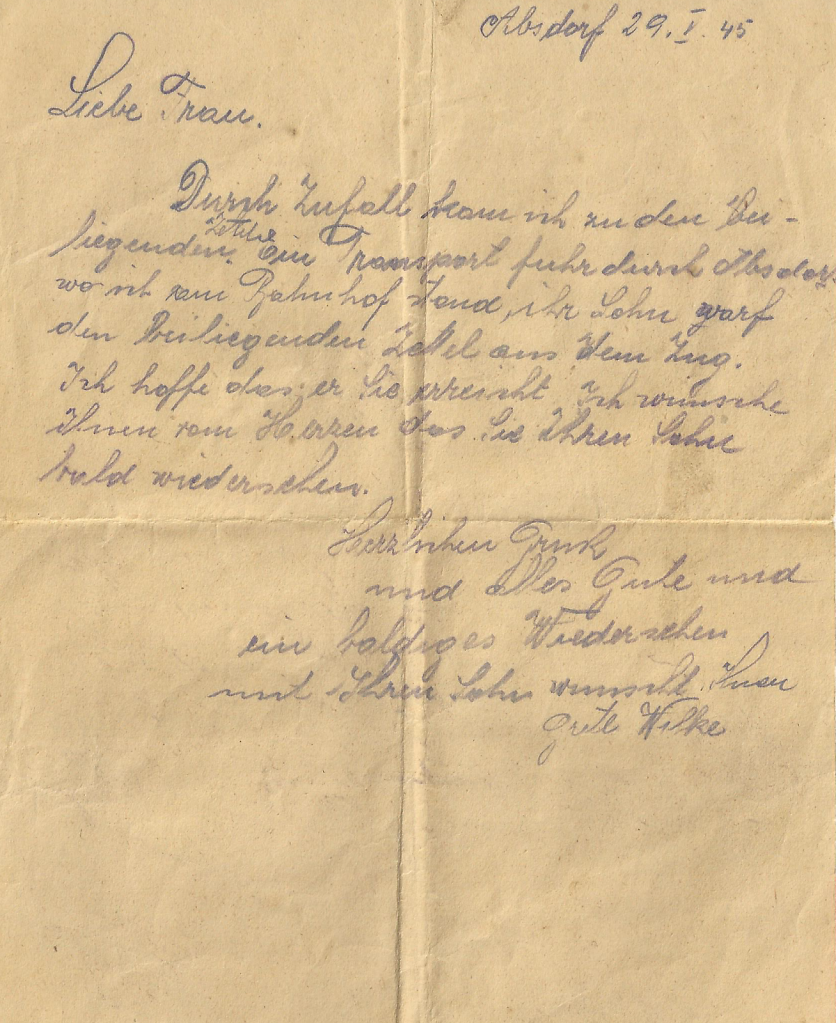 Absdorf 29. V. 45
Liebe Frau.
Durch Zufall kam ich zu den bei-
liegenden Zettel. Ein Transport fuhr durch Absdorf
wo ich am Bahnhof stand, ihr Sohn warf
den beiliegenden Zettel aus dem Zug.
Ich hoffe das er Sie erreicht. Ich wünsche
ihnen vom Herren das Sie Ihren Sohn
bald wiedersehen.
Herzlichen Gruß
und alles Gute und
ein baldiges Wiedersehen
mit Ihren Sohn wünscht Ihnen
Grete Wilke